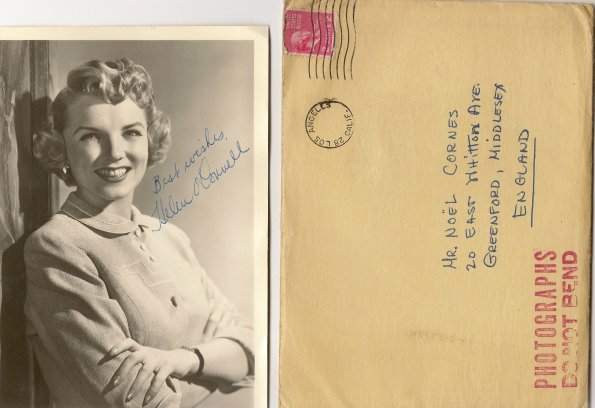 Best wishes,
Helen O'Connell
LOS ANGELES
28
MR. NOËL CORNES
20 EAST WHITTON AVE.
GREENFORD, MIDDLESEX
ENGLAND
PHOTOGRAPHS
DO NOT BEND